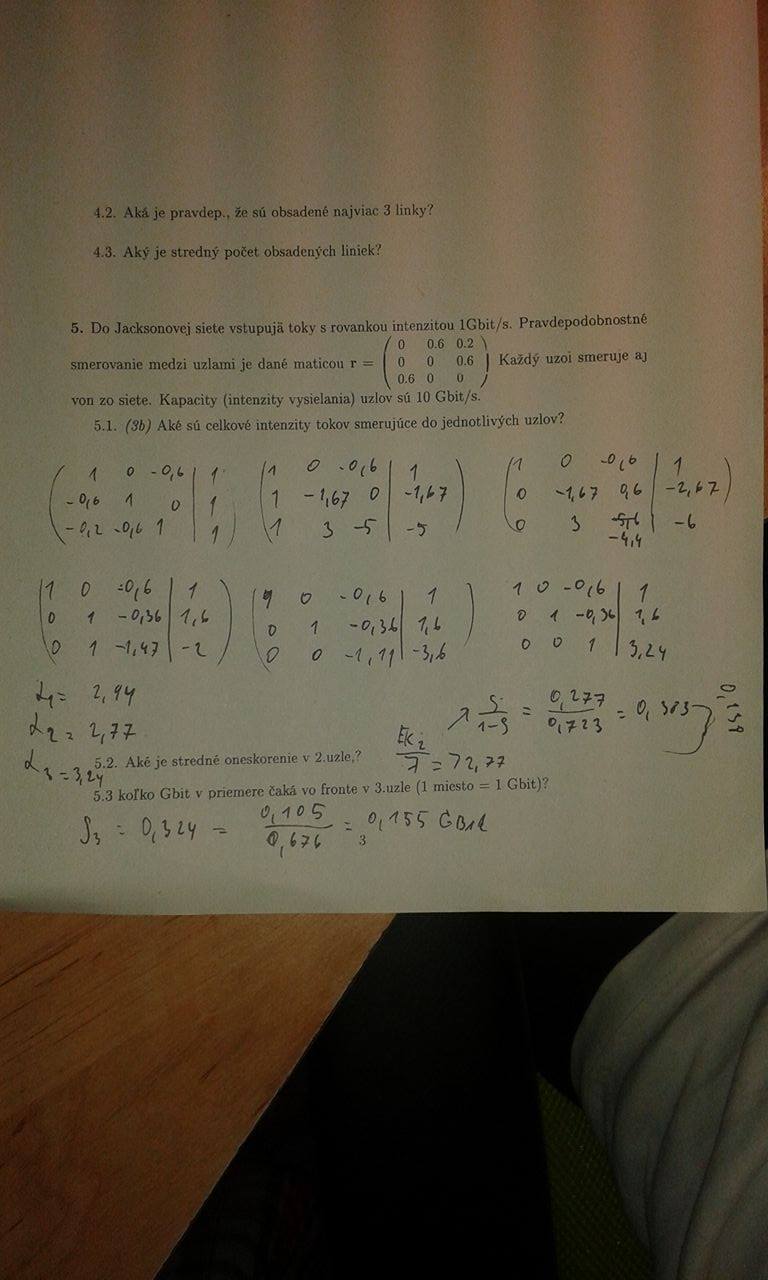 4.2. Aká je pravdep., že sú obsadené najviac 3 linky?
4.3. Aký je stredný počet obsadených liniek?
5. Do Jacksonovej siete vstupujä toky s rovankou intenzitou 1Gbit/s. Pravdepodobnostné
0 0.6 0.2
smerovanie medzi uzlami je dané maticou r = ( 0 0 0.6 ) Každý uzoi smeruje aj
0.6 0 0
von zo siete. Kapacity (intenzity vysielania) uzlov sú 10 Gbit/s.
5.1. (3b) Aké sú celkové intenzity tokov smerujúce do jednotlivých uzlov?
( 1 0 -0,6 | 1 ( 1 0 -0,6 | 1 ) ( 1 0 -0,6 | 1 )
-0,6 1 0 | 1 1 -1,67 0 | -1,67 0 -1,67 0,6 | -2,67
-0,2 -0,6 1 | 1 ) 1 3 -5 | -5 0 3 | -6
-4,4
( 1 0 -0,6 | 1 ) ( 1 0 -0,6 | 1 ) 1 0 -0,6 | 1
0 1 -0,36 | 1,6 0 1 -0,36 | 1,6 0 1 -0,36 | 1,6
0 1 -1,47 | -2 0 0 -1,11 | -3,6 0 0 1 | 3,24
α1 = 2,94
α2 = 2,77
α3 = 3,24
ρ/1-ρ = 0,277/0,723 = 0,383 }
5.2. Aké je stredné oneskorenie v 2.uzle,?
5.3 koľko Gbit v priemere čaká vo fronte v 3.uzle (1 miesto = 1 Gbit)?
ρ3 = 0,324 = 0,105/0,676 = 0,155 GBit
3